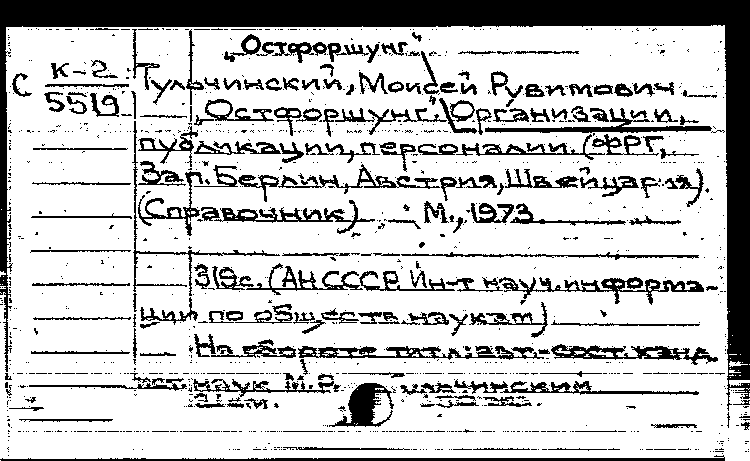 „Остфоршунг"
С К-2 Тульчинский, Моисей Рувимович.
5519 „Остфоршунг". Организации,
публикации, персоналии. (ФРГ,
Зап. Берлин, Австрия, Швейцария).
(Справочник) М., 1973
319с. (АН СССР. Ин-т науч. информа-
ции по обществ. наукам)
На обороте тит.л: авт.-сост. канд.
ист. наук М.Р. Тульчинский